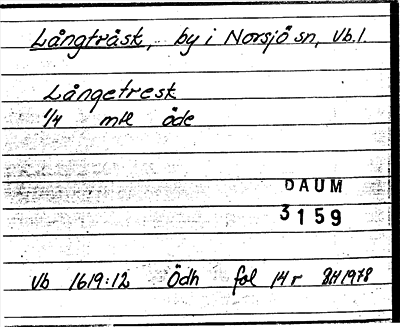 Långträsk, by i Norsjö sn, Vb. l.
Långetresk
1/4 mtl öde
DAUM
3159
Vb 1619:12 Ödh fol 14r BH 1978